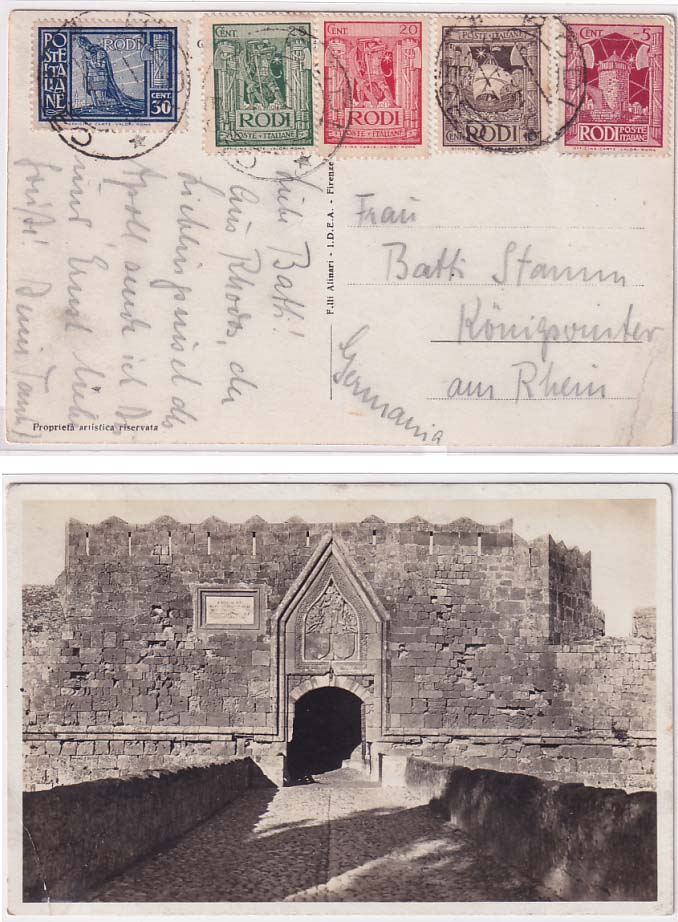 POSTE ITALIANE
RODI
CENT.
50
CENT. 25
RODI
POSTE ITALIANE
CENT. 20
RODI
POSTE ITALIANE
POSTE ITALIANE
CENT.
RODI
CENT. 5
RODI POSTE ITALIANE
Liebe Batti!
Aus Rhodos, der
Lieblingsinsel des
Apoll sende ich Dir
und Ernst liebe
Grüße! Deine Tante
Proprietà artistica riservata
F.lli Alinari - I.D.E.A. - Firenze
Frau
Batti Stamm
Königswinter
am Rhein
Germania